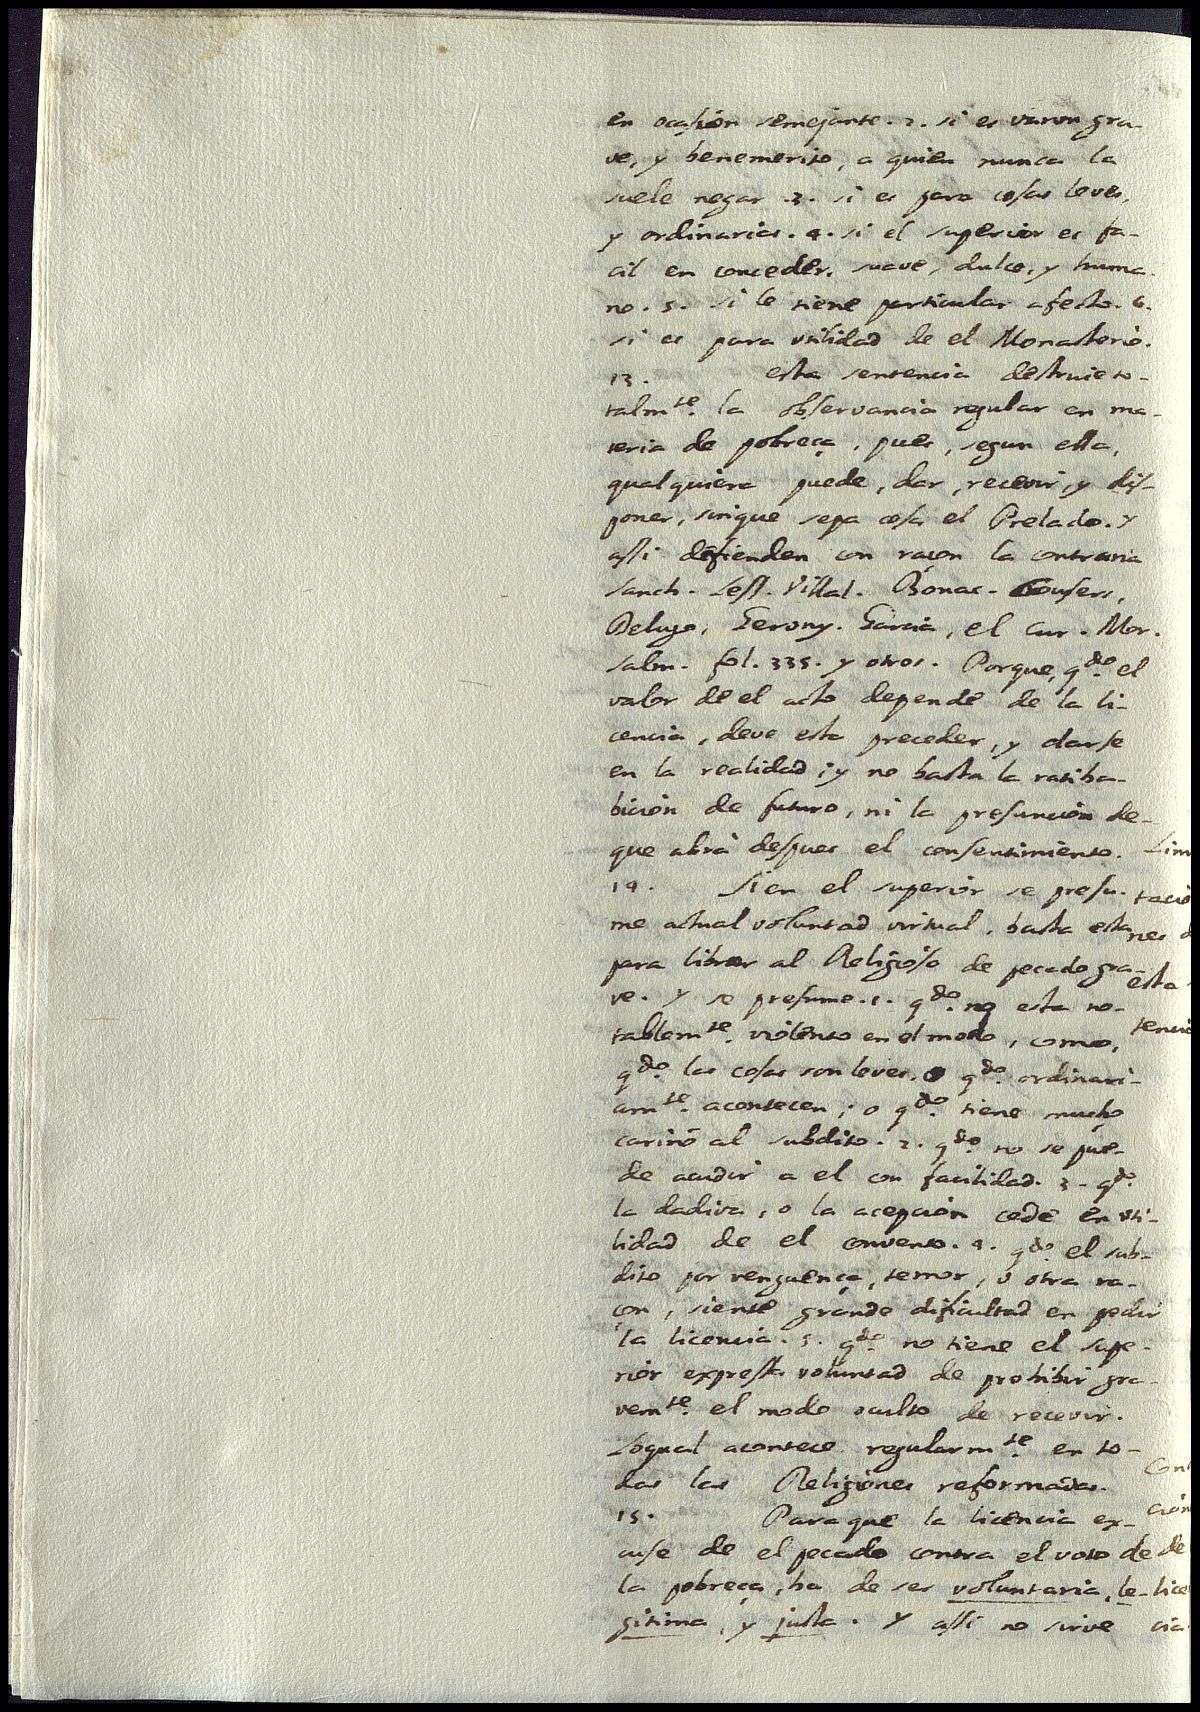 en ocasion semejante. 2. si es varon gra-
ve, y benemerito, a quien nunca la
suele negar. 3. si es para cosas leves,
y ordinarias. 4. si el superior es fa-
cil en conceder, suave, dulce, y huma-
no. 5. si le tiene particular afecto. 6.
si es para utilidad de el Monasterio.
13. esta sentencia destruie to-
talmte. la observancia regular en ma-
teria de pobreça, pues, segun ella,
qualquiera puede, dar, recevir, y dis-
poner, sinque sepa cosa el Prelado. Y
assi defienden con raçon la contraria
Sanch. Less. Villal. Bonac.
Pelizo, Gerony. Garcia, el Cur. Mor.
Salm. fol. 335. y otros. Porque, qdo. el
valor de el acto depende de la li-
cencia, deve esta preceder, y darse
en la realidad; y no basta la ratiha-
bicion de futuro, ni la presuncion de-
que abrà despues el consentimiento. Lim
14. Si en el superior se presu- tacio
me actual voluntad virtual, basta esta nes d
para librar al Religioso de pecado gra- esta
ve. Y se presume. 1. qdo. no esta no-
tablemte. violento en el modo, como, tencia
qdo. las cosas son leves. o qdo. ordinari-
amte. acontecen; o qdo. tiene mucho
cariño al subdito. 2. qdo. no se pue-
de acudir a el con facilidad. 3. qdo.
la dadiva, o la acepcion cede en uti-
lidad de el convento. 4. qdo. el sub-
dito por verguença, temor, u otra ra-
çon, siente grande dificultad en pedir
la licencia. 5. qdo. no tiene el supe-
rior expressa voluntad de prohibir gra-
vemte. el modo oculto de recevir.
Loqual acontece regularmte. en to-
das las Religiones reformadas. Con
15. Paraque la licencia ex- cion
cuse de el pecado contra el voto de de
la pobreça, ha de ser voluntaria, le- lice
gitima, y justa. Y assi no sirve cia